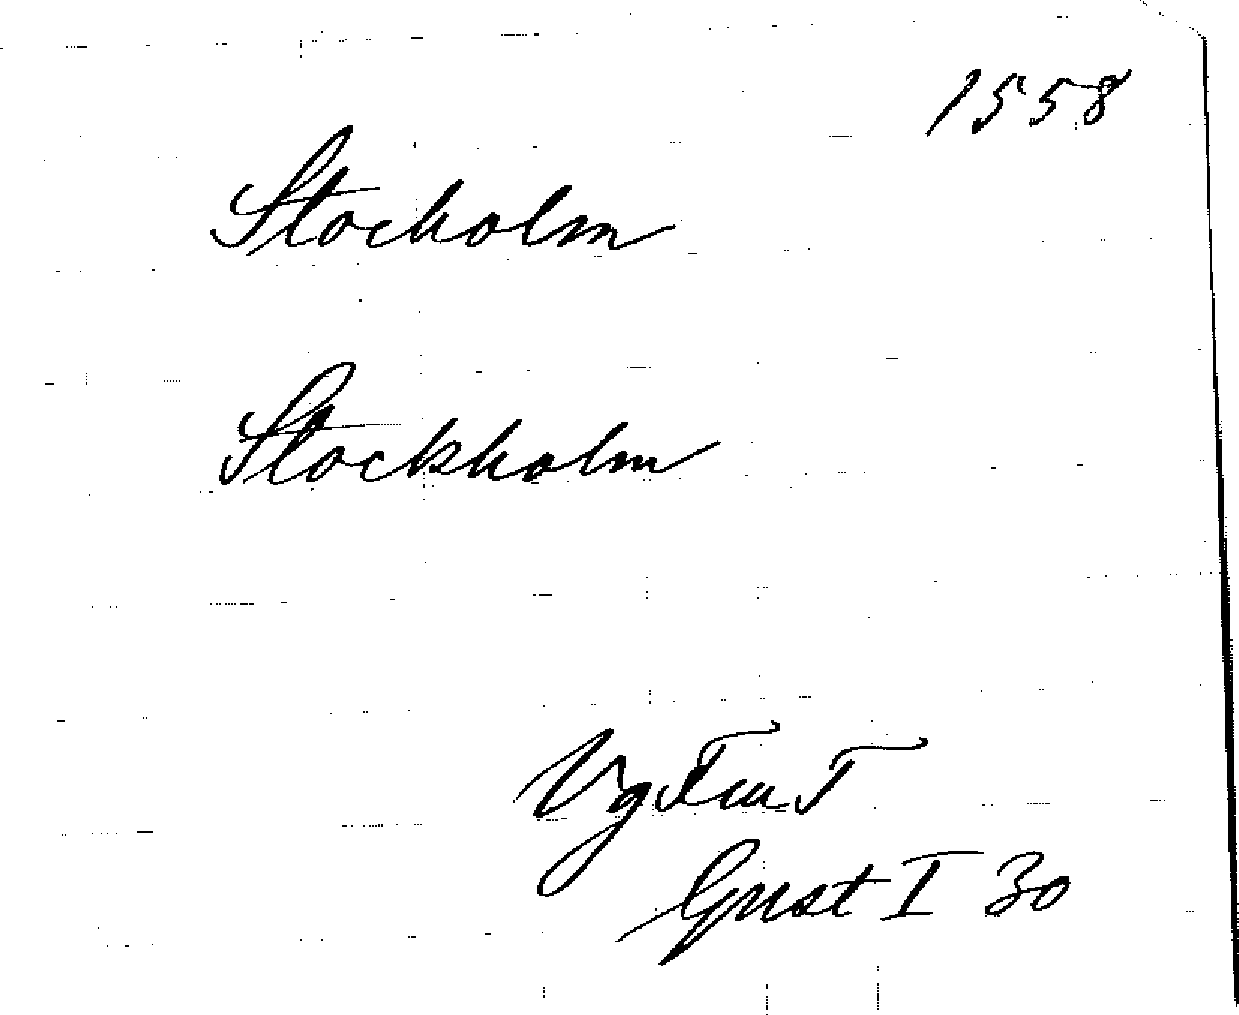 1558
Stocholm
Stockholm
VgFmT
Gust I 30